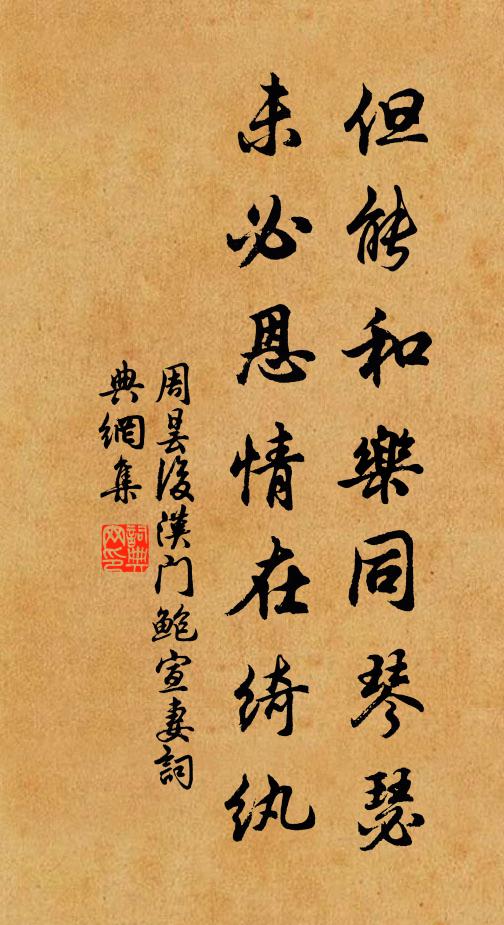 但能和樂同琴瑟
未必恩情在綺紈
周曇後漢门鲍宣妻詞
典網集
詞典
网印